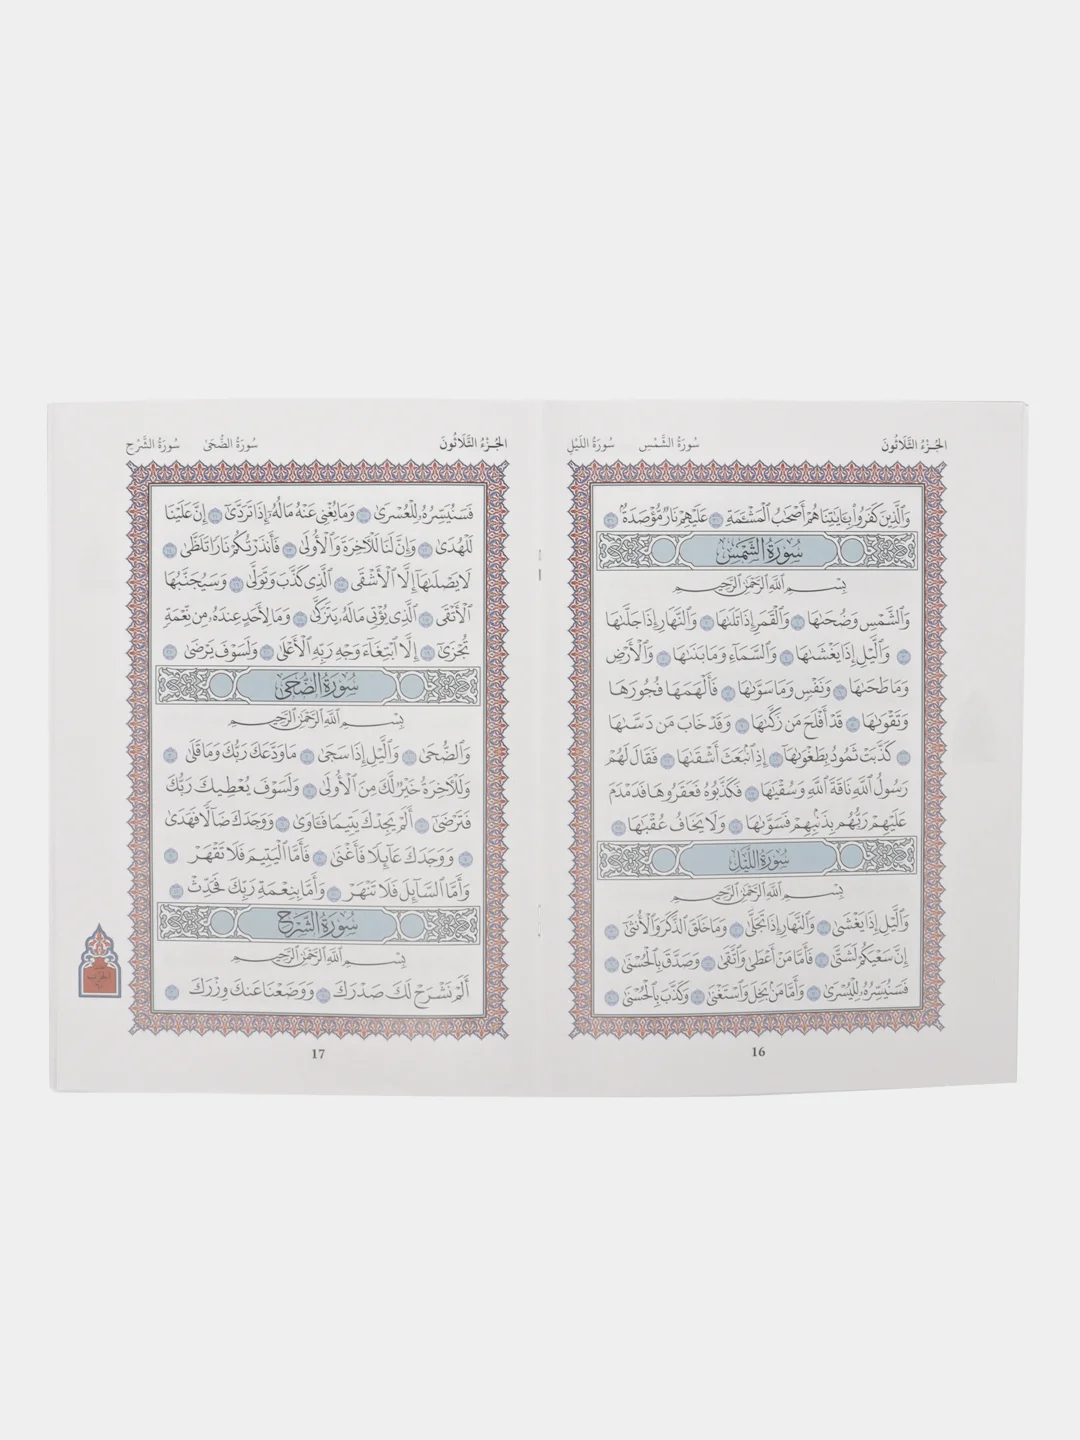 الجُزْءُ الثَّلَاثُونَ سُورَةُ الشَّمْسِ سُورَةُ اللَّيْلِ
وَٱلَّذِينَ كَفَرُوا۟ بِـَٔايَـٰتِنَا هُمْ أَصْحَـٰبُ ٱلْمَشْـَٔمَةِ ١٩ عَلَيْهِمْ نَارٌ مُّؤْصَدَةٌۢ ٢٠
سُورَةُ الشَّمْسِ
بِسْمِ ٱللَّهِ ٱلرَّحْمَـٰنِ ٱلرَّحِيمِ
وَٱلشَّمْسِ وَضُحَىٰهَا ١ وَٱلْقَمَرِ إِذَا تَلَىٰهَا ٢ وَٱلنَّهَارِ إِذَا جَلَّىٰهَا
٣ وَٱلَّيْلِ إِذَا يَغْشَىٰهَا ٤ وَٱلسَّمَآءِ وَمَا بَنَىٰهَا ٥ وَٱلْأَرْضِ
وَمَا طَحَىٰهَا ٦ وَنَفْسٍ وَمَا سَوَّىٰهَا ٧ فَأَلْهَمَهَا فُجُورَهَا
وَتَقْوَىٰهَا ٨ قَدْ أَفْلَحَ مَن زَكَّىٰهَا ٩ وَقَدْ خَابَ مَن دَسَّىٰهَا
١٠ كَذَّبَتْ ثَمُودُ بِطَغْوَىٰهَآ ١١ إِذِ ٱنۢبَعَثَ أَشْقَىٰهَا ١٢ فَقَالَ لَهُمْ
رَسُولُ ٱللَّهِ نَاقَةَ ٱللَّهِ وَسُقْيَـٰهَا ١٣ فَكَذَّبُوهُ فَعَقَرُوهَا فَدَمْدَمَ
عَلَيْهِمْ رَبُّهُم بِذَنۢبِهِمْ فَسَوَّىٰهَا ١٤ وَلَا يَخَافُ عُقْبَـٰهَا ١٥
سُورَةُ اللَّيْلِ
بِسْمِ ٱللَّهِ ٱلرَّحْمَـٰنِ ٱلرَّحِيمِ
وَٱلَّيْلِ إِذَا يَغْشَىٰ ١ وَٱلنَّهَارِ إِذَا تَجَلَّىٰ ٢ وَمَا خَلَقَ ٱلذَّكَرَ وَٱلْأُنثَىٰٓ ٣
إِنَّ سَعْيَكُمْ لَشَتَّىٰ ٤ فَأَمَّا مَنْ أَعْطَىٰ وَٱتَّقَىٰ ٥ وَصَدَّقَ بِٱلْحُسْنَىٰ ٦
فَسَنُيَسِّرُهُۥ لِلْيُسْرَىٰ ٧ وَأَمَّا مَنۢ بَخِلَ وَٱسْتَغْنَىٰ ٨ وَكَذَّبَ بِٱلْحُسْنَىٰ ٩
16
الجُزْءُ الثَّلَاثُونَ سُورَةُ الضُّحَىٰ سُورَةُ الشَّرْحِ
فَسَنُيَسِّرُهُۥ لِلْعُسْرَىٰ ١٠ وَمَا يُغْنِى عَنْهُ مَالُهُۥٓ إِذَا تَرَدَّىٰٓ ١١ إِنَّ عَلَيْنَا
لَلْهُدَىٰ ١٢ وَإِنَّ لَنَا لَلْـَٔاخِرَةَ وَٱلْأُولَىٰ ١٣ فَأَنذَرْتُكُمْ نَارًا تَلَظَّىٰ ١٤
لَا يَصْلَىٰهَآ إِلَّا ٱلْأَشْقَى ١٥ ٱلَّذِى كَذَّبَ وَتَوَلَّىٰ ١٦ وَسَيُجَنَّبُهَا
ٱلْأَتْقَى ١٧ ٱلَّذِى يُؤْتِى مَالَهُۥ يَتَزَكَّىٰ ١٨ وَمَا لِأَحَدٍ عِندَهُۥ مِن نِّعْمَةٍ
تُجْزَىٰٓ ١٩ إِلَّا ٱبْتِغَآءَ وَجْهِ رَبِّهِ ٱلْأَعْلَىٰ ٢٠ وَلَسَوْفَ يَرْضَىٰ ٢١
سُورَةُ الضُّحَىٰ
بِسْمِ ٱللَّهِ ٱلرَّحْمَـٰنِ ٱلرَّحِيمِ
وَٱلضُّحَىٰ ١ وَٱلَّيْلِ إِذَا سَجَىٰ ٢ مَا وَدَّعَكَ رَبُّكَ وَمَا قَلَىٰ ٣
وَلَلْـَٔاخِرَةُ خَيْرٌ لَّكَ مِنَ ٱلْأُولَىٰ ٤ وَلَسَوْفَ يُعْطِيكَ رَبُّكَ
فَتَرْضَىٰٓ ٥ أَلَمْ يَجِدْكَ يَتِيمًا فَـَٔاوَىٰ ٦ وَوَجَدَكَ ضَآلًّا فَهَدَىٰ
٧ وَوَجَدَكَ عَآئِلًا فَأَغْنَىٰ ٨ فَأَمَّا ٱلْيَتِيمَ فَلَا تَقْهَرْ ٩
وَأَمَّا ٱلسَّآئِلَ فَلَا تَنْهَرْ ١٠ وَأَمَّا بِنِعْمَةِ رَبِّكَ فَحَدِّثْ ١١
سُورَةُ الشَّرْحِ
بِسْمِ ٱللَّهِ ٱلرَّحْمَـٰنِ ٱلرَّحِيمِ
أَلَمْ نَشْرَحْ لَكَ صَدْرَكَ ١ وَوَضَعْنَا عَنكَ وِزْرَكَ ٢
17